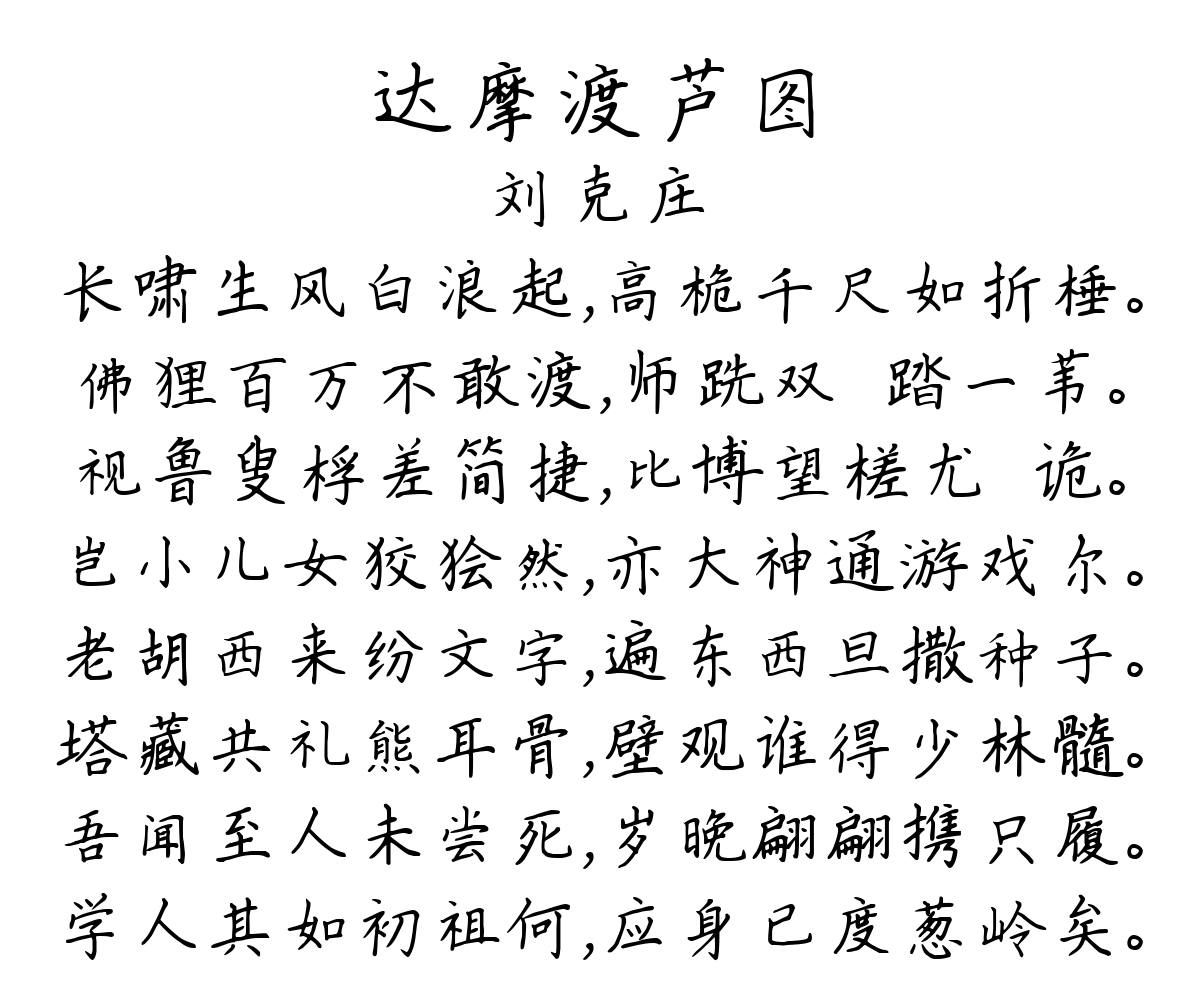 达摩渡芦图
刘克庄
长啸生风白浪起,高桅千尺如折棰。
佛狸百万不敢渡,师跣双 踏一苇。
视鲁叟桴差简捷,比博望槎尤 诡。
岂小儿女狡狯然,亦大神通游戏尔。
老胡西来纷文字,遍东西旦撒种子。
塔藏共礼熊耳骨,壁观谁得少林髓。
吾闻至人未尝死,岁晚翩翩携只履。
学人其如初祖何,应身已度葱岭矣。